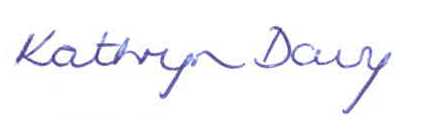 Kathryn Davy